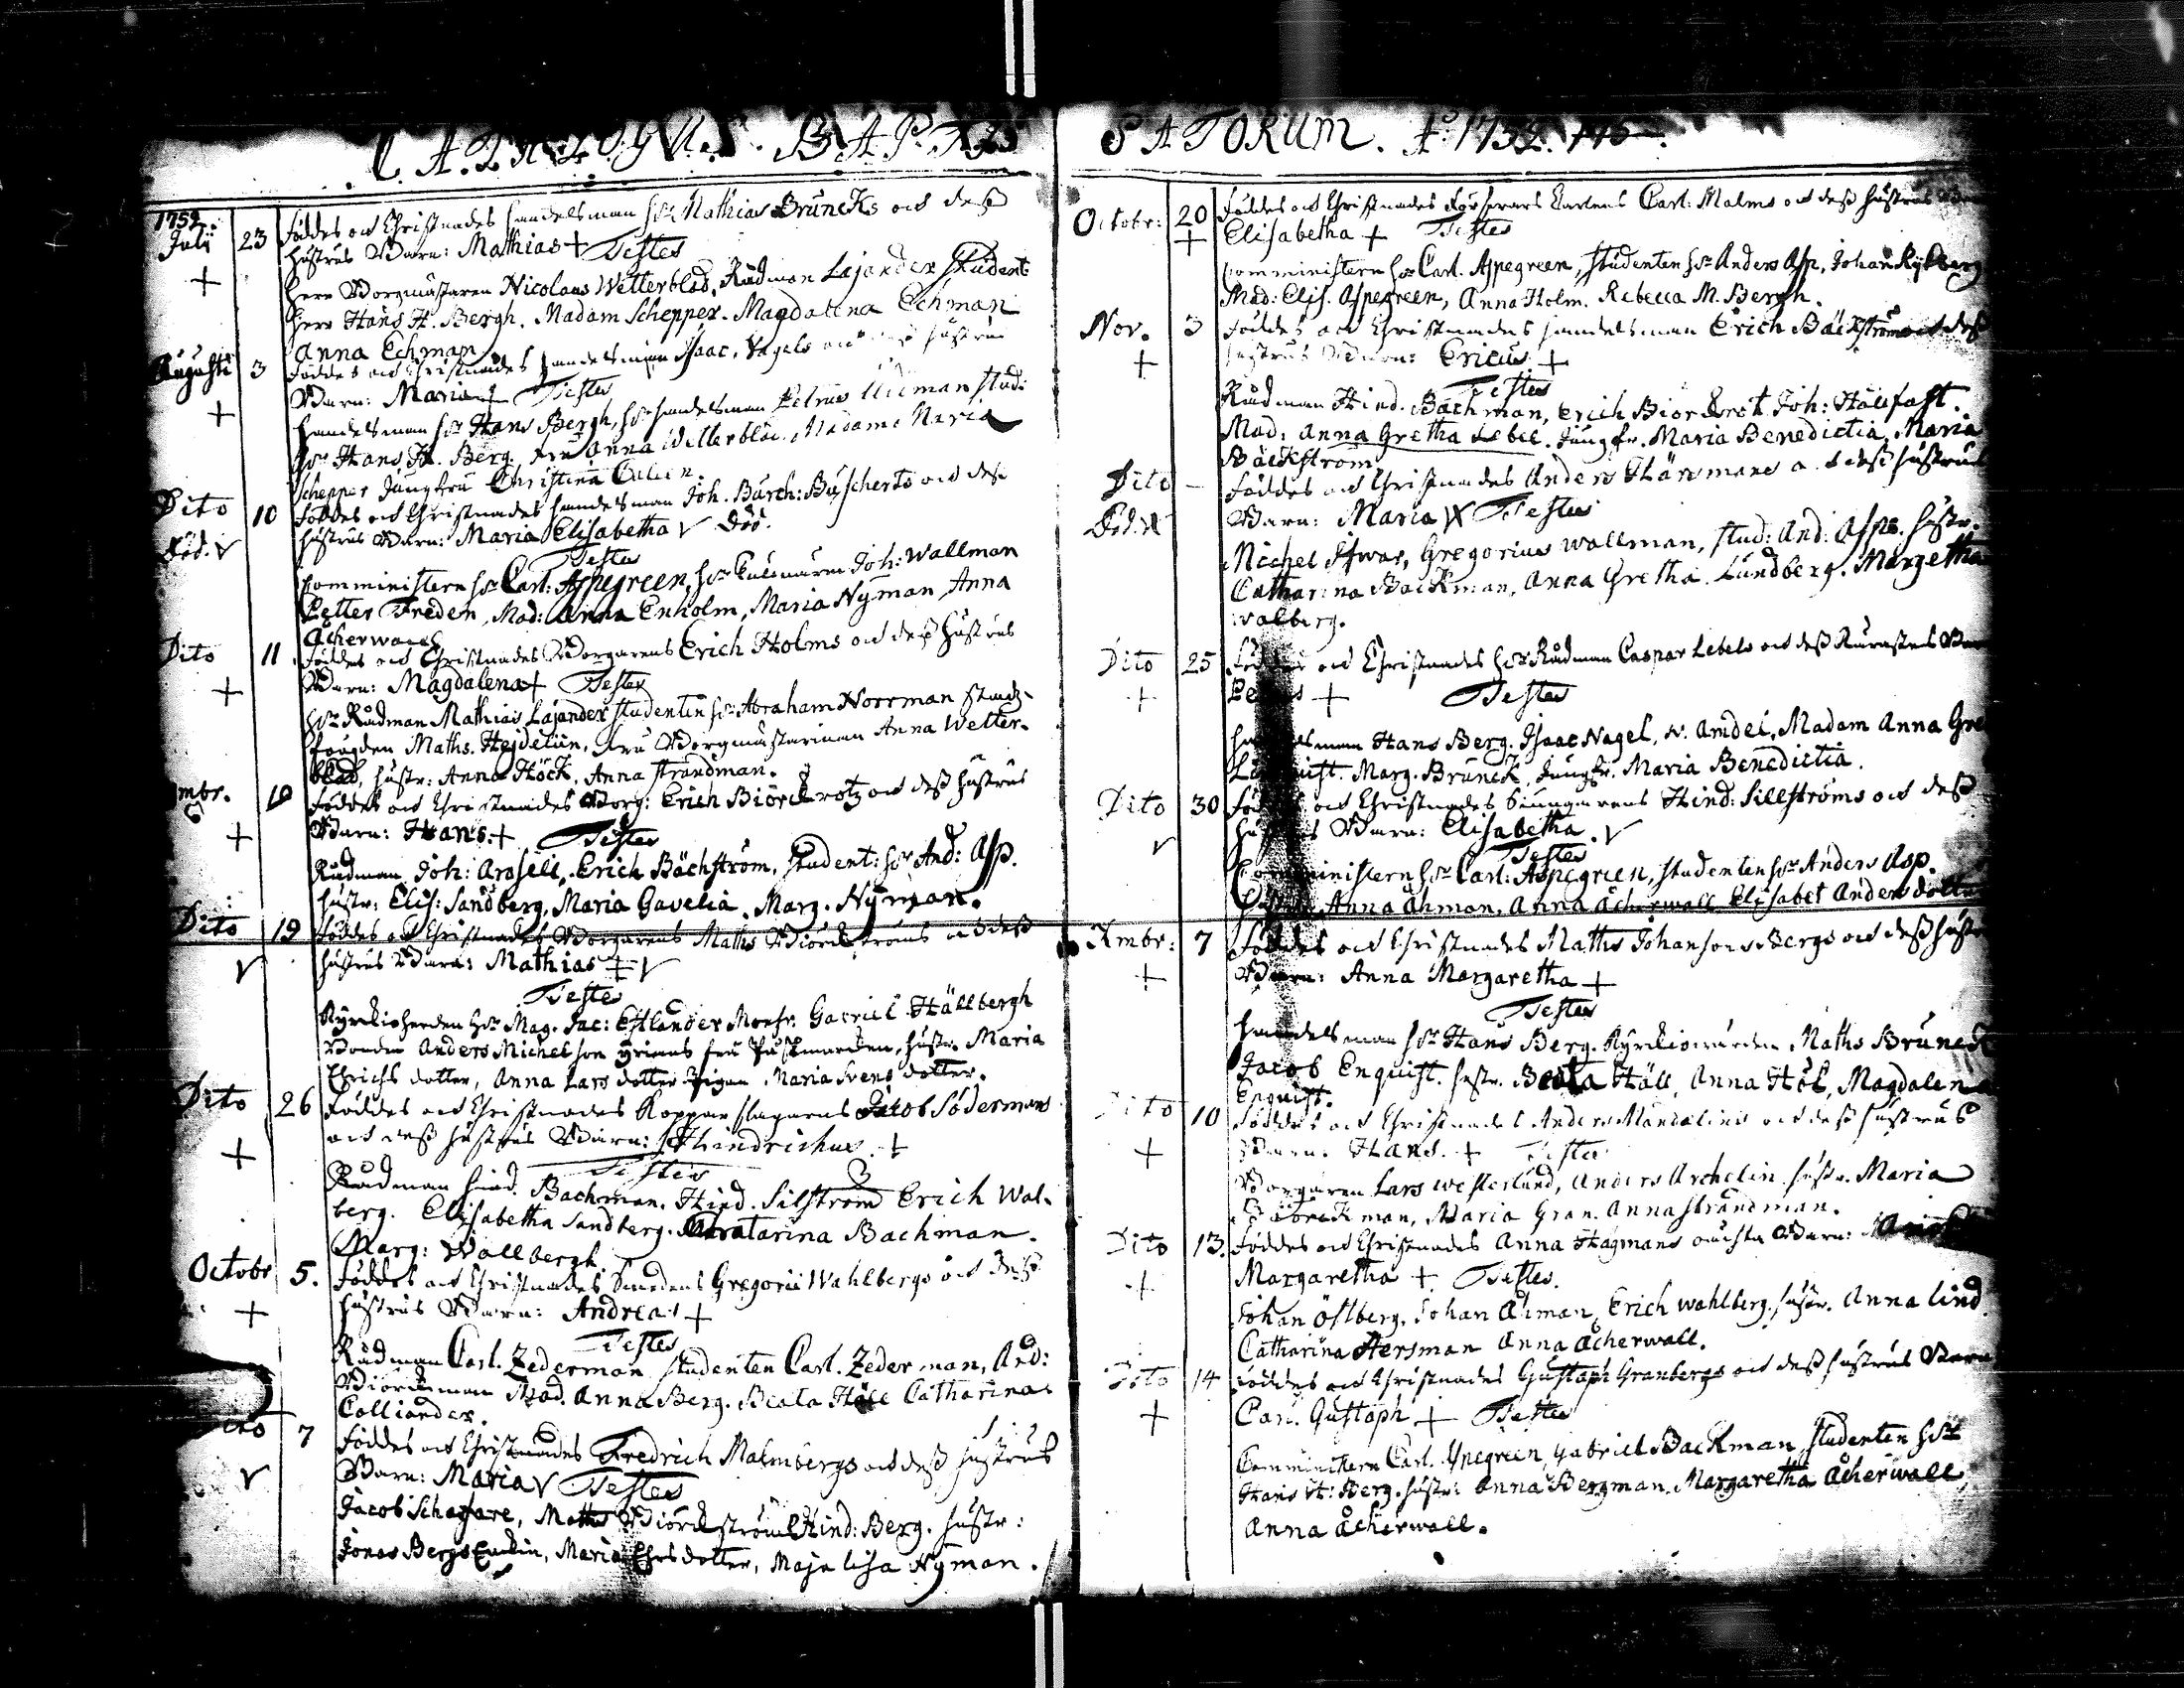 CATALOGUS. BAPTI
1752.
July 23 Föddes och Christnades Handelsman Hr Mathias Bruncks och dess
+ hustrus Barn: Mathias + Testes
Herr Borgmästaren Nicolaus Wetterblad, Rådman Lajander Student
Herr Hans H. Bergh. Madam Schepper. Magdalena Echman
Anna Echman
Augusti 3 Föddes och Christnades Handelsman Isaac Nagels och dess hustrus
+ Barn: Maria + Testes
Handelsman Hr Hans Bergh, Hr Handelsman Petrus Ulleman stud:
Hr Hans H. Berg. Fru Anna Wetterblad. Madame Maria
Schepper Jungfru Christina
Dito 10 Föddes och Christnades Handelsman Joh. Barth: Buscherts och dess
Död. V hustrus Barn: Maria Elisabetha V Död.
Testes
Comministern Hr Carl: Aspegreen, Hr Joh: Wallman
Petter Freden, Mad: Anna Enholm, Maria Nyman Anna
Acherwall
Dito 11 Föddes och Christnades Borgarens Erich Holms och dess hustrus
+ Barn: Magdalena + Testes
Hr Rådman Mathias Lajander studenten Hr Abraham Norrman stads-
fougden Maths. Hejdelün, fru Borgmästarinnan Anna Wetter-
blad, hustr: Anna Höck, Anna Strandman.
mbr. 10 Föddes och Christnades Borg: Erich Biörckrotz och dess hustrus
+ Barn: Hans. + Testes
Rådman Joh: Aroseli, Erich Bächström, Student: Hr And: Asp.
hustr: Elis: Sandberg, Maria Gavelia, Marg. Nyman.
Dito 19 Föddes och Christnades Borgarens Maths Biörckströms och dess
V hustrus Barn: Mathias + V
Testes
Kyrckioherden Hr Mag. Jac: Estlander Monsr. Gabriel Hällbergh
Bonden Anders Michelson från hustr. Maria
Erichs dotter, Anna Lars dotter Pigan Maria Svens dotter.
Dito 26 Föddes och Christnades Kopparslagarens Jacob Södermans
+ och dess hustrus Barn: Hindrichus. +
Testes
Rådman Hind. Bachman. Hind. Silström Erich Wal-
berg. Elisabetha Sandberg. Catarina Bachman.
Marg: Wallbergh.
Octobr 5. Föddes och Christnades Smedens Gregorii Wahlbergs och dess
+ hustrus Barn: Andreas +
Testes
Rådman Carl. Zederman studenten Carl. Zederman, And:
Biörckman Mad. Anna Berg. Beata Häll Catharina
Colliander.
Dito 7 Föddes och Christnades Fredrich Malmbergs och dess hustrus
V Barn: Maria V Testes
Jacob Schafare, Maths Biörckström Hind: Berg. hustr:
Jonas Bergs Enckia, Maria Ers dotter, Maja Lisa Nyman.
SATORUM. Ao: 1752.
Octobr: 20 Föddes och Christnades Carl: Malms och dess hustrus Barn
+ Elisabetha + Testes
Comministern Hr Carl. Aspegreen, studenten Hr Anders Asp, Johan Rytberg
Mad: Elis. Aspegreen, Anna Holm. Rebecca M. Bergh.
Nov. 3 Föddes och Christnades Handelsman Erich Bäckströms och dess
+ hustrus Barn: Ericus. +
Testes
Rådman Hind. Bachman, Erich Biörckrot Joh: Hällfast.
Mad: Anna Gretha Lebel. Jungfr. Maria Benedictia, Maria
Bäckström
Dito - Föddes och Christnades Anders Härsmans och dess hustrus
Död. Barn: Maria Testes
Michel Ifwar, Gregorius Wallman, stud: And: Asp. hustr.
Catharina Backman, Anna Gretha Lundberg. Margetha
Walberg.
Dito 25 Föddes och Christnades Hr Rådman Caspar Lebels och dess Barn
+ Petrus + Testes
Handelsman Hans Berg. Isaac Nagel, N. Amdel, Madam Anna Gre
Marg. Brunck, Jungfr. Maria Benedictia.
Dito 30 Föddes och Christnades Hind: Sillströms och dess
V hustrus Barn: Elisabetha. V
Testes
Comministern Hr Carl: Aspegreen, studenten Hr Anders Asp.
Anna Åhman, Anna Åcherwall Elisabet Anders dotter
Xmbr: 7 Föddes och Christnades Maths Johansons Bergs och dess hustr
+ Barn: Anna Margaretha +
Testes
Handelsman Hr Hans Berg. Maths Brunck
Jacob Enquist. hustr. Beata Häll, Anna Höl, Magdalena
Enquist.
Dito 10 Föddes och Christnades Anders Mandelins och dess hustrus
+ Barn: Hans. + Testes
Borgaren Lars Westerlund, Anders Archelin hustr. Maria
Biörckman, Maria Gran. Anna Strandman.
Dito 13. Föddes och Christnades Anna Hagmans oächta Barn:
+ Margaretha + Testes.
Johan Östberg. Johan Åhman, Erich Wahlberg. hustr. Anna Lind
Catharina Hersman Anna Åcherwall.
Dito 14 Föddes och Christnades Gustaph Granbergs och dess hustrus Barn
+ Carl. Gustaph + Testes
Comministern Carl. Aspegreen, Gabriel Backman, studenten Hr
Hans H: Berg. hustr: Anna Bergman. Margaretha Åcherwall,
Anna Åcherwall.